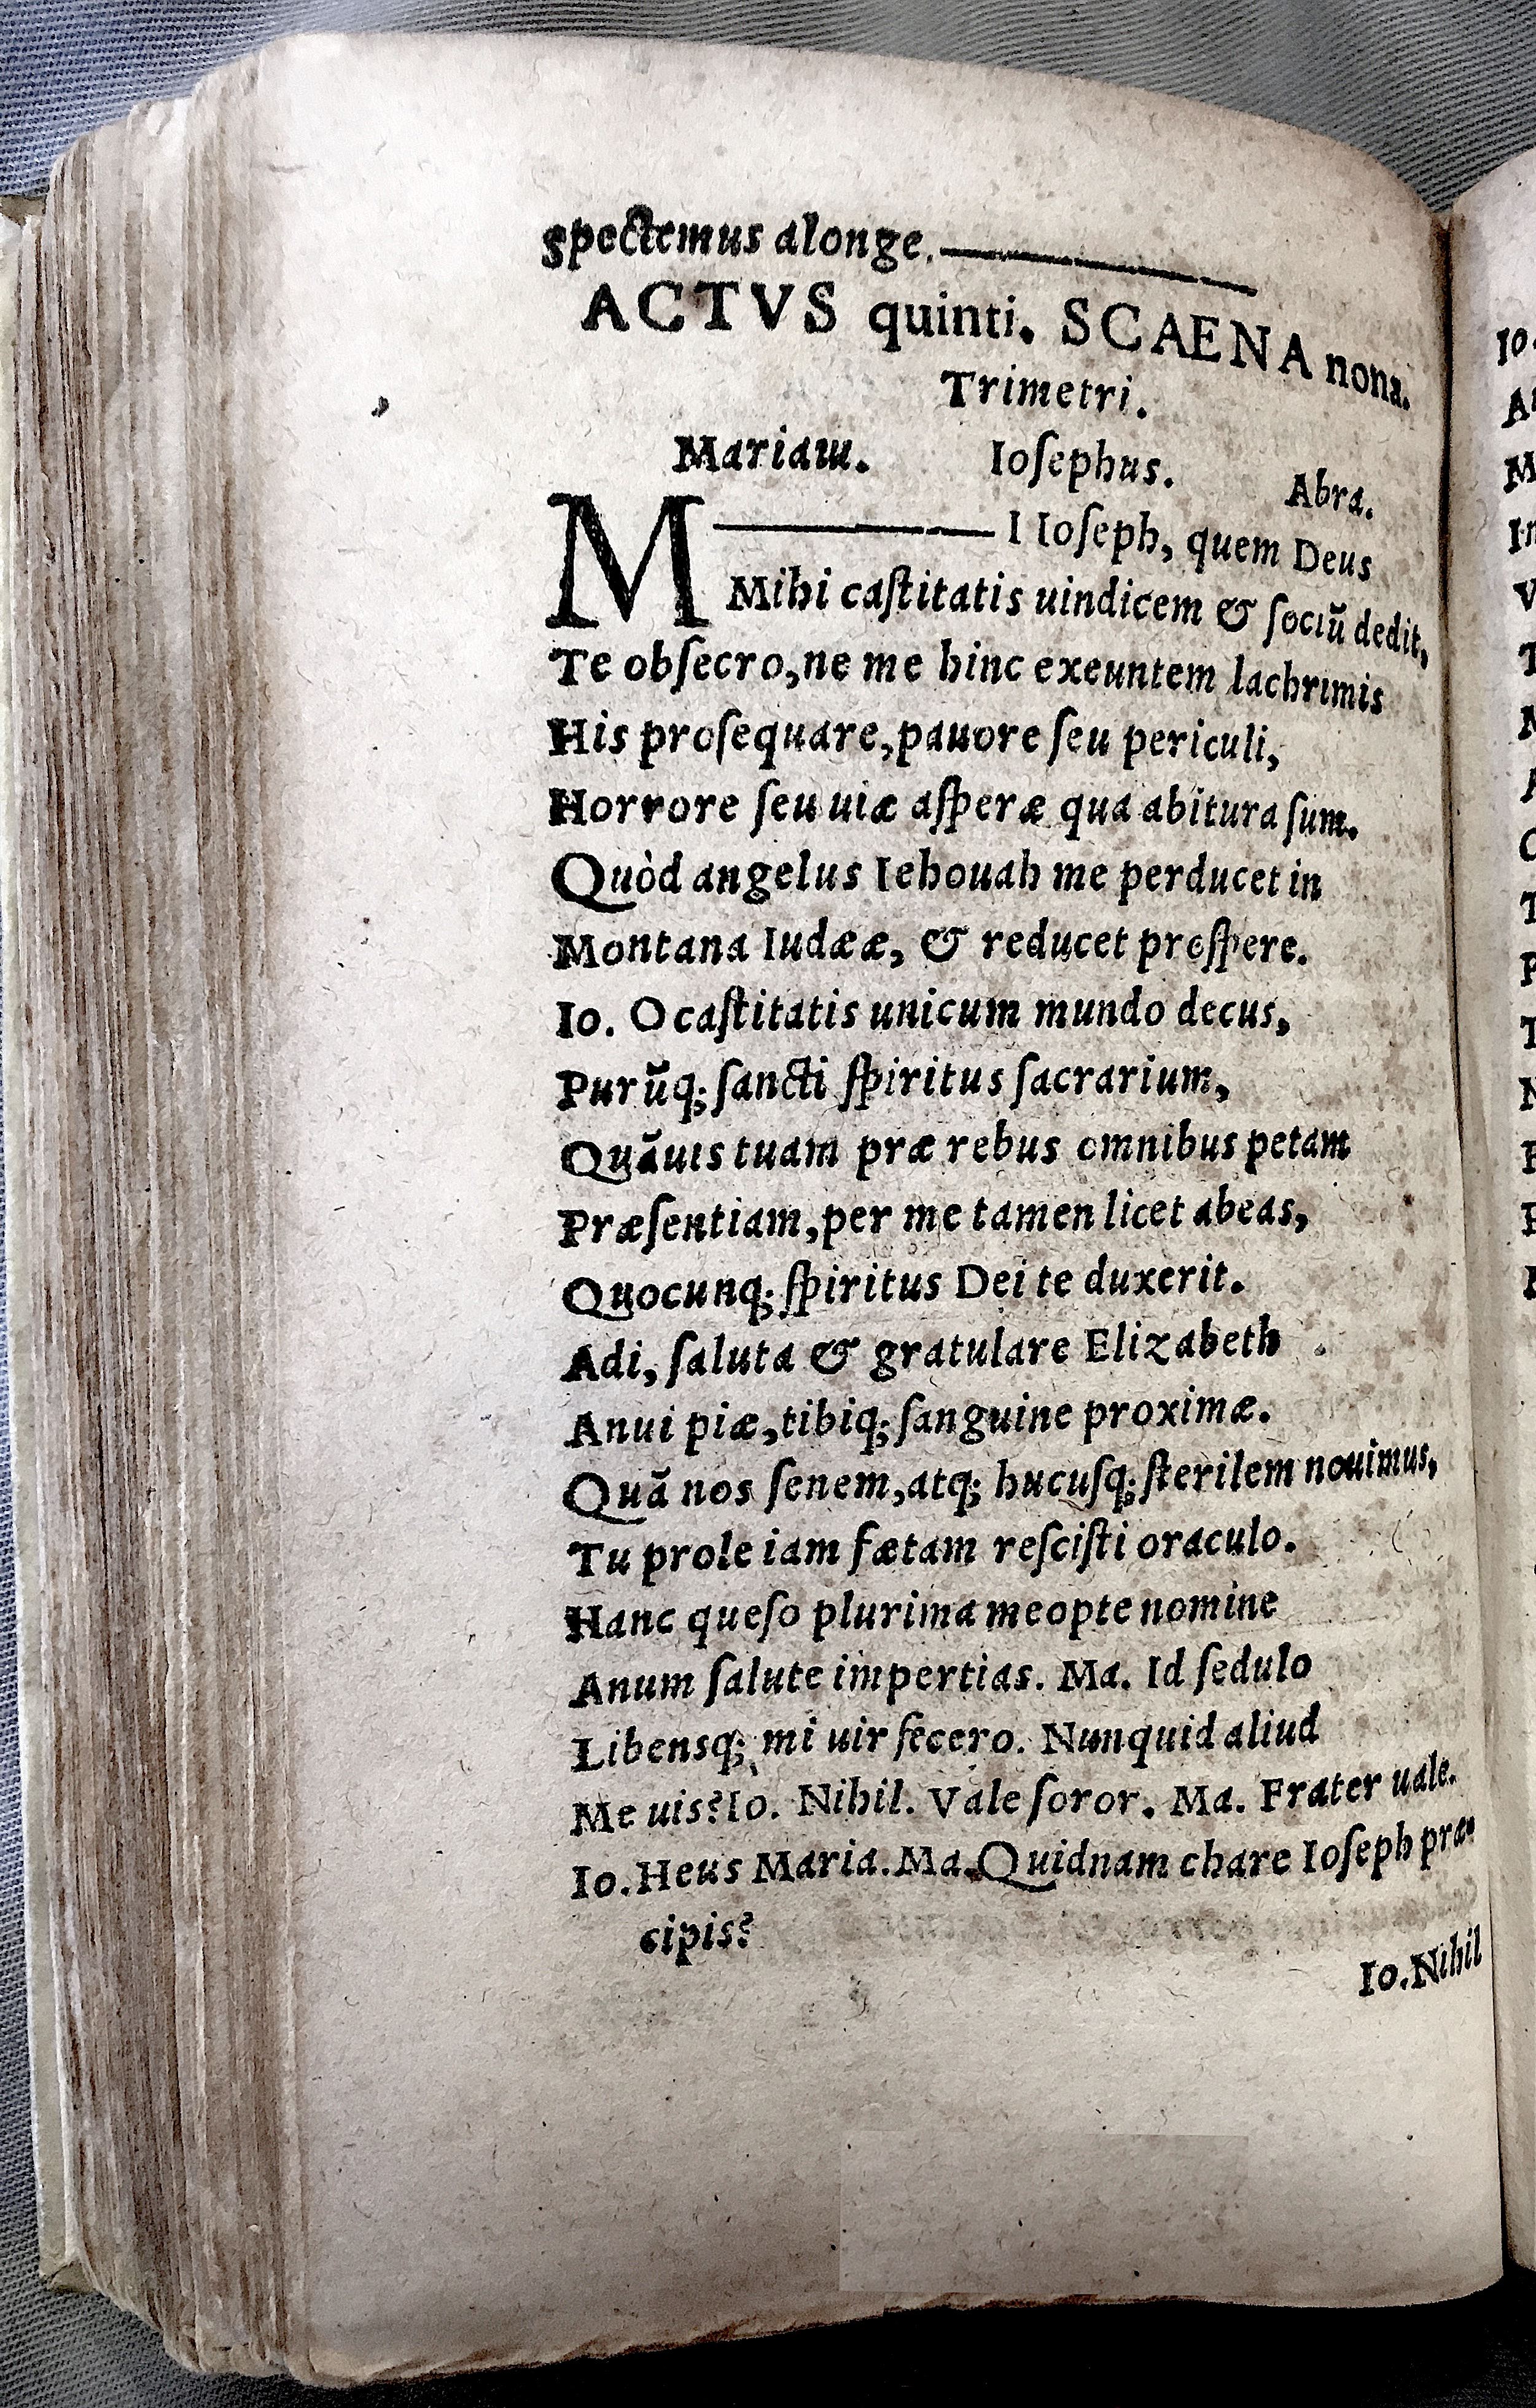 spectemus alonge.
ACTVS quinti. SCAENA nona.
Trimetri.
Mariam. Iosephus. Abra.
M I Ioseph, quem Deus
Mihi castitatis uindicem & sociũ dedit,
Te obsecro, ne me hinc exeuntem lachrimis
His prosequare, pauore seu periculi,
Horrore seu uiæ asperæ qua abitura sum.
Quòd angelus Iehouah me perducet in
Montana Iudææ, & reducet prospere.
Io. O castitatis unicum mundo decus,
Purũq; sancti spiritus sacrarium,
Quãuis tuam præ rebus omnibus petam
Præsentiam, per me tamen licet abeas,
Quocunq; spiritus Dei te duxerit.
Adi, saluta & gratulare Elizabeth
Anui piæ, tibiq; sanguine proximæ.
Quã nos senem, atq; hucusq; sterilem nouimus,
Tu prole iam fætam rescisti oraculo.
Hanc queso plurima meopte nomine
Anum salute impertias. Ma. Id sedulo
Libensq; mi uir fecero. Nunquid aliud
Me uis? Io. Nihil. Vale soror. Ma. Frater uale.
Io. Heus Maria. Ma. Quidnam chare Ioseph præ-
cipis?
Io. Nihil